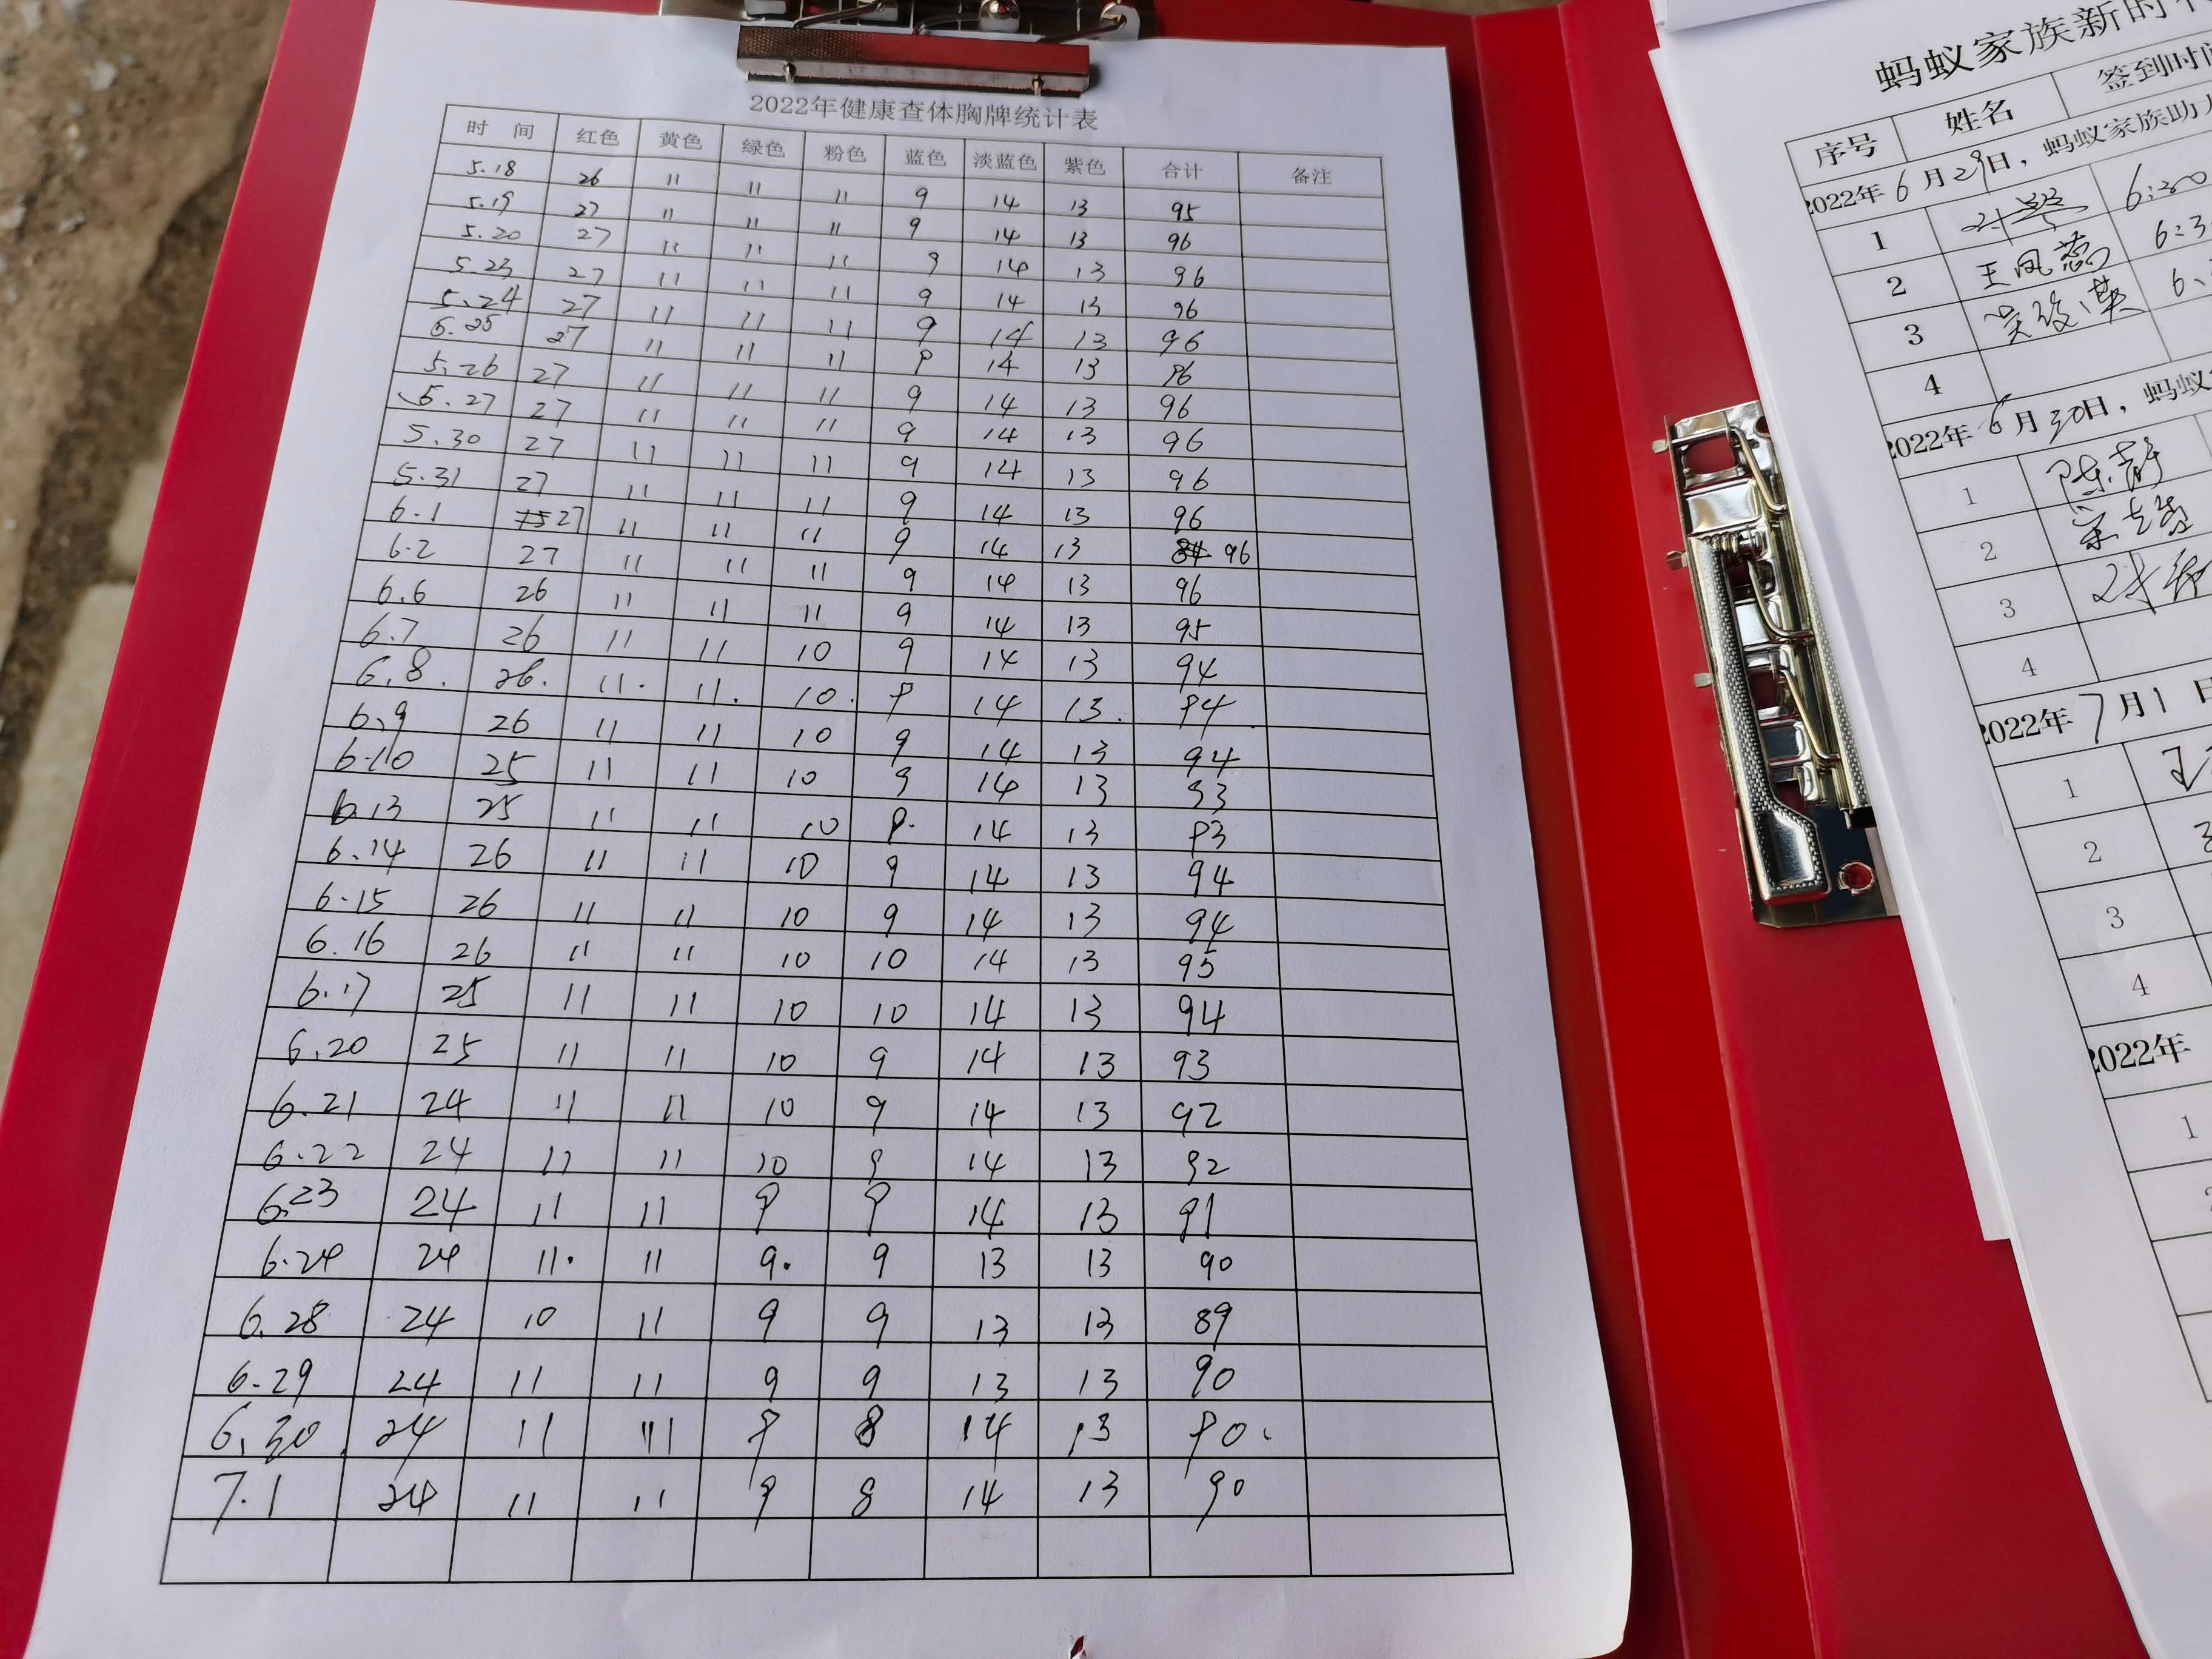 2022年健康查体胸牌统计表
时 间 红色 黄色 绿色 粉色 蓝色 淡蓝色 紫色 合计 备注
5.18 26 11 11 11 9 14 13 95
5.19 27 11 11 11 9 14 13 96
5.20 27 11 11 11 9 14 13 96
5.23 27 11 11 11 9 14 13 96
5.24 27 11 11 11 9 14 13 96
5.25 27 11 11 11 9 14 13 96
5.26 27 11 11 11 9 14 13 96
5.27 27 11 11 11 9 14 13 96
5.30 27 11 11 11 9 14 13 96
5.31 27 11 11 11 9 14 13 96
6.1 27 11 11 11 9 14 13 96
6.2 27 11 11 11 9 14 13 96
6.6 26 11 11 11 9 14 13 95
6.7 26 11 11 10 9 14 13 94
6.8. 26. 11. 11. 10. 9 14 13. 94.
6.9 26 11 11 10 9 14 13 94
6.10 25 11 11 10 9 14 13 93
6.13 25 11 11 10 9. 14 13 93
6.14 26 11 11 10 9 14 13 94
6.15 26 11 11 10 9 14 13 94
6.16 26 11 11 10 10 14 13 95
6.17 25 11 11 10 10 14 13 94
6.20 25 11 11 10 9 14 13 93
6.21 24 11 11 10 9 14 13 92
6.22 24 11 11 10 9 14 13 92
6.23 24 11 11 9 9 14 13 91
6.24 24 11. 11 9. 9 13 13 90
6.28 24 10 11 9 9 13 13 89
6.29 24 11 11 9 9 13 13 90
6.30. 24 11 11 9 8 14 13 90.
7.1 24 11 11 9 8 14 13 90
蚂蚁家族新时
序号 姓名 签到时间
2022年6月29日，蚂蚁家族助
1 6:20
2 王凤蕊 6:3
3 6:
4
2022年6月30日，蚂蚁
1 陈静
2
3
4
2022年7月1日
1 王
2
3
4
2022年
1